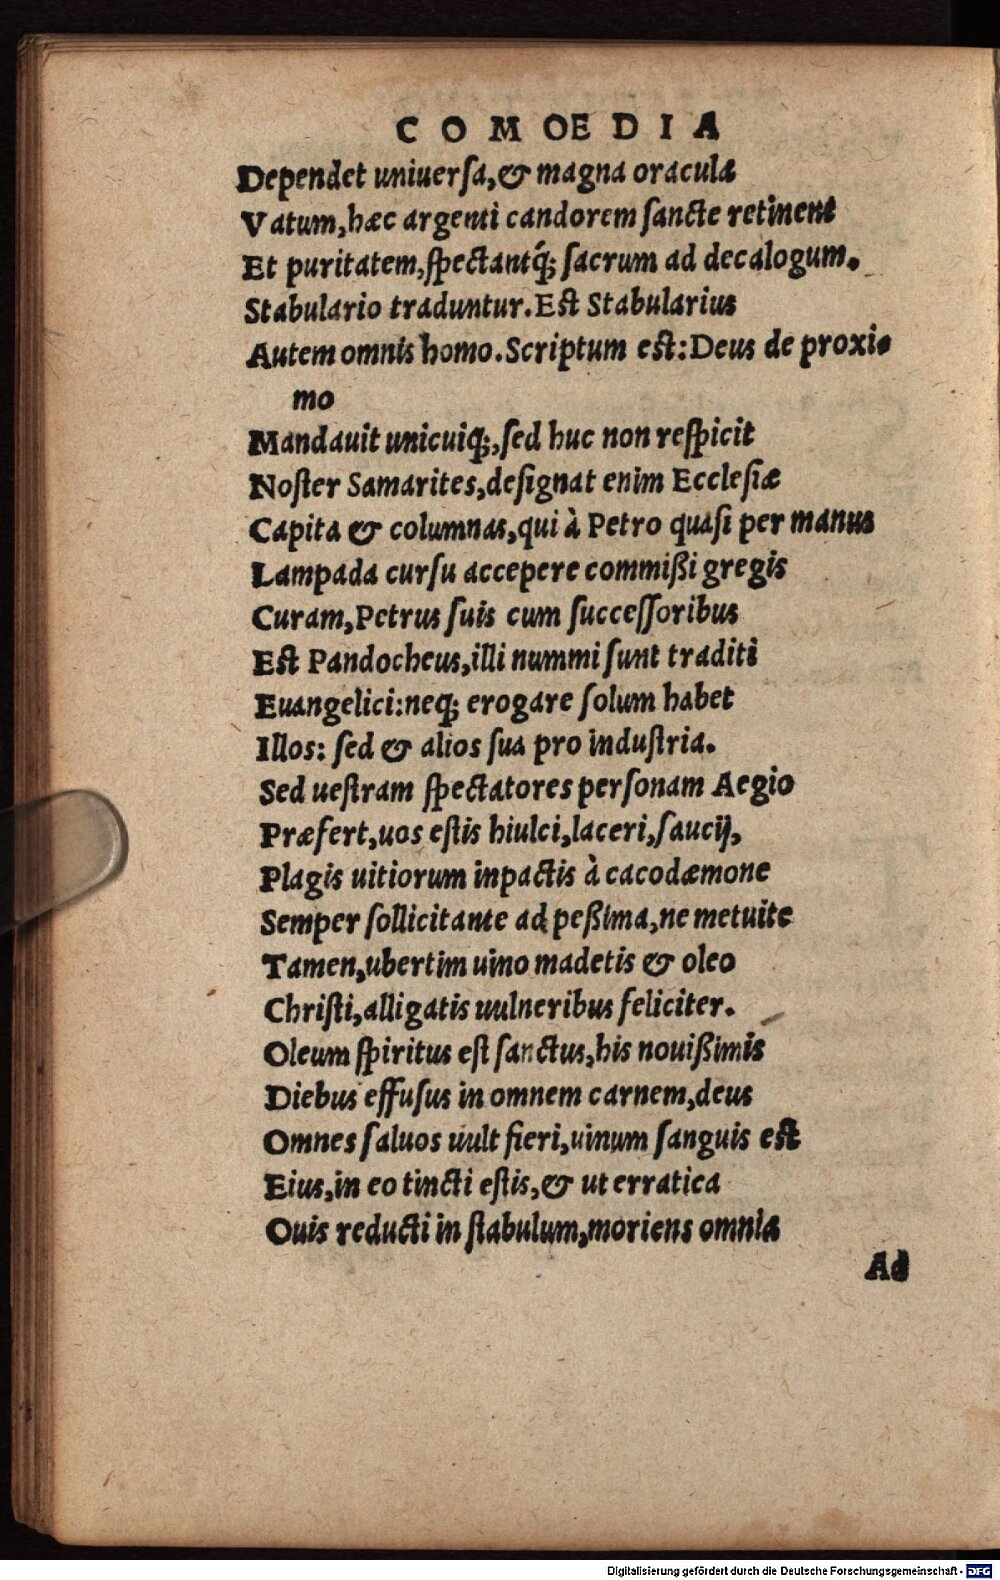 COMOEDIA
Dependet uniuersa, & magna oracula
Vatum, hæc argenti candorem sancte retinent
Et puritatem, spectantq́; sacrum ad decalogum.
Stabulario traduntur. Est Stabularius
Autem omnis homo. Scriptum est: Deus de proxi-
mo
Mandauit unicuiq;, sed huc non respicit
Noster Samarites, designat enim Ecclesiæ
Capita & columnas, qui à Petro quasi per manus
Lampada cursu accepere commißi gregis
Curam, Petrus suis cum successoribus
Est Pandocheus, illi nummi sunt traditi
Euangelici: neq; erogare solum habet
Illos: sed & alios sua pro industria.
Sed uestram spectatores personam Aegio
Præfert, uos estis hiulci, laceri, saucij,
Plagis uitiorum inpactis à cacodæmone
Semper sollicitante ad peßima, ne metuite
Tamen, ubertim uino madetis & oleo
Christi, alligatis uulneribus feliciter.
Oleum spiritus est sanctus, his nouißimis
Diebus effusus in omnem carnem, deus
Omnes saluos uult fieri, uinum sanguis est
Eius, in eo tincti estis, & ut erratica
Ouis reducti in stabulum, moriens omnia
Ad
Digitalisierung gefördert durch die Deutsche Forschungsgemeinschaft - DFG